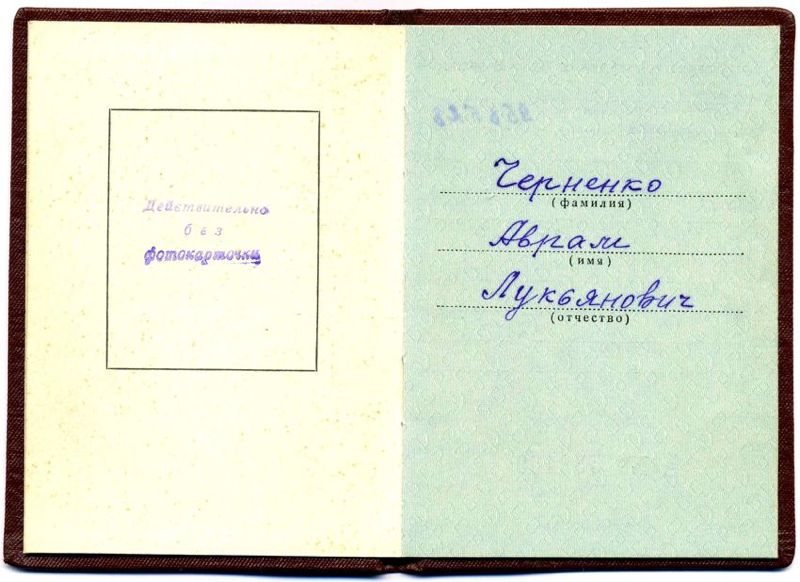 Действительно
без
фотокарточки
Черненко
(фамилия)
Аврам
(имя)
Лукьянович
(отчество)